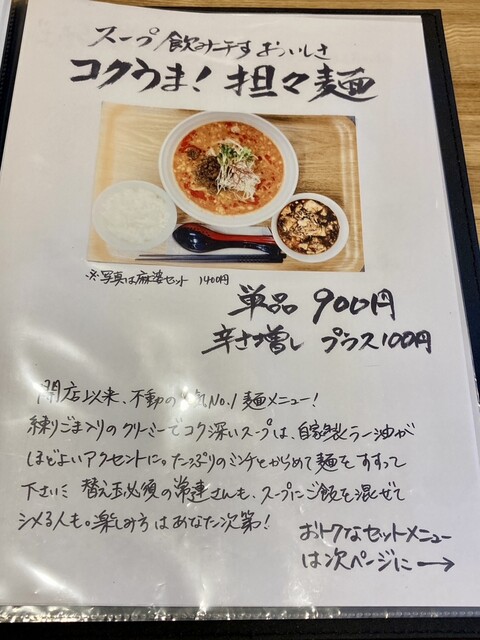 スープ飲み干すおいしさ
コクうま！担々麺
※写真は麻婆セット 1400円
単品 900円
辛さ増し プラス100円
開店以来、不動の人気No.1麺メニュー！
練りごま入りのクリーミーでコク深いスープは、自家製ラー油が
ほどよいアクセントに。たっぷりのミンチとからめて麺をすすって
下さい！替え玉必須の常連さんも、スープにご飯を混ぜて
シメる人も。楽しみ方はあなた次第！
おトクなセットメニュー
は次ページに→